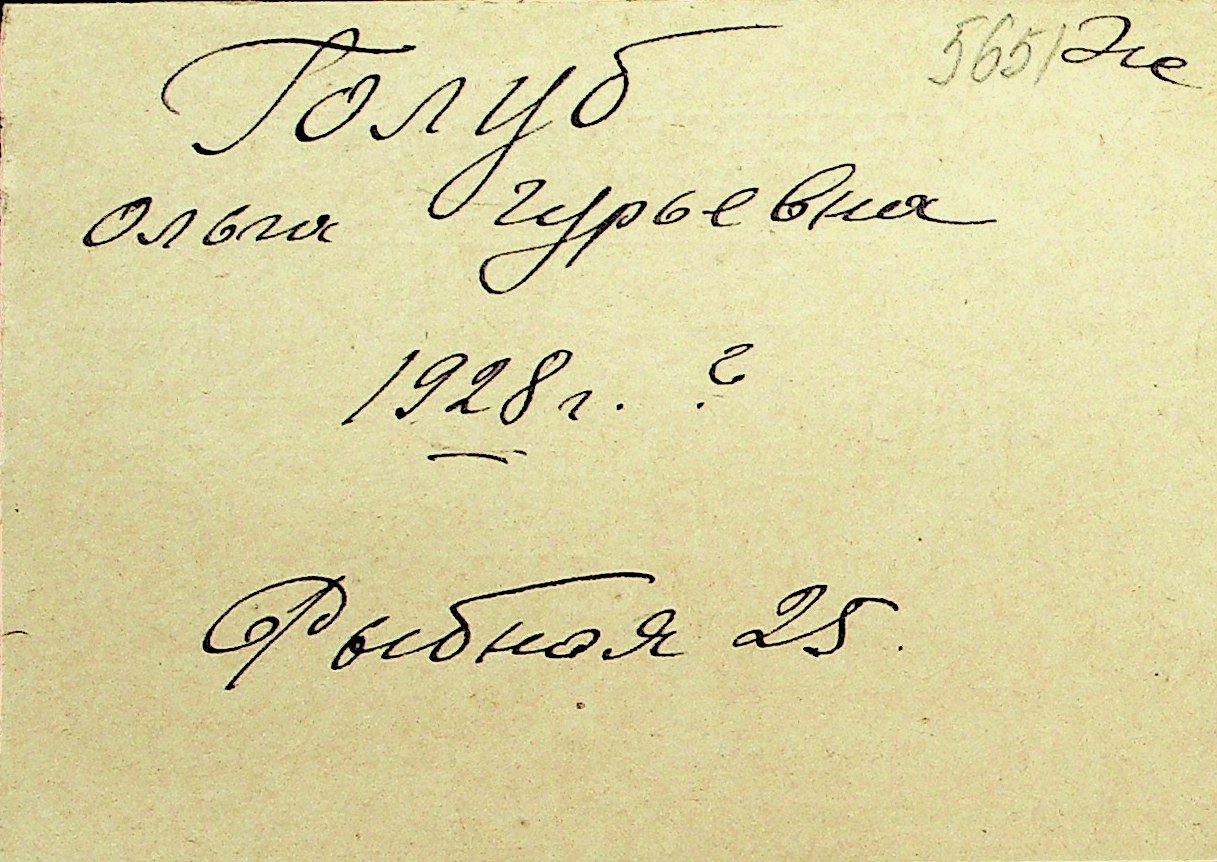 5651
Голуб
ольга гурьевна
1928г. ?
Рыбная 25.